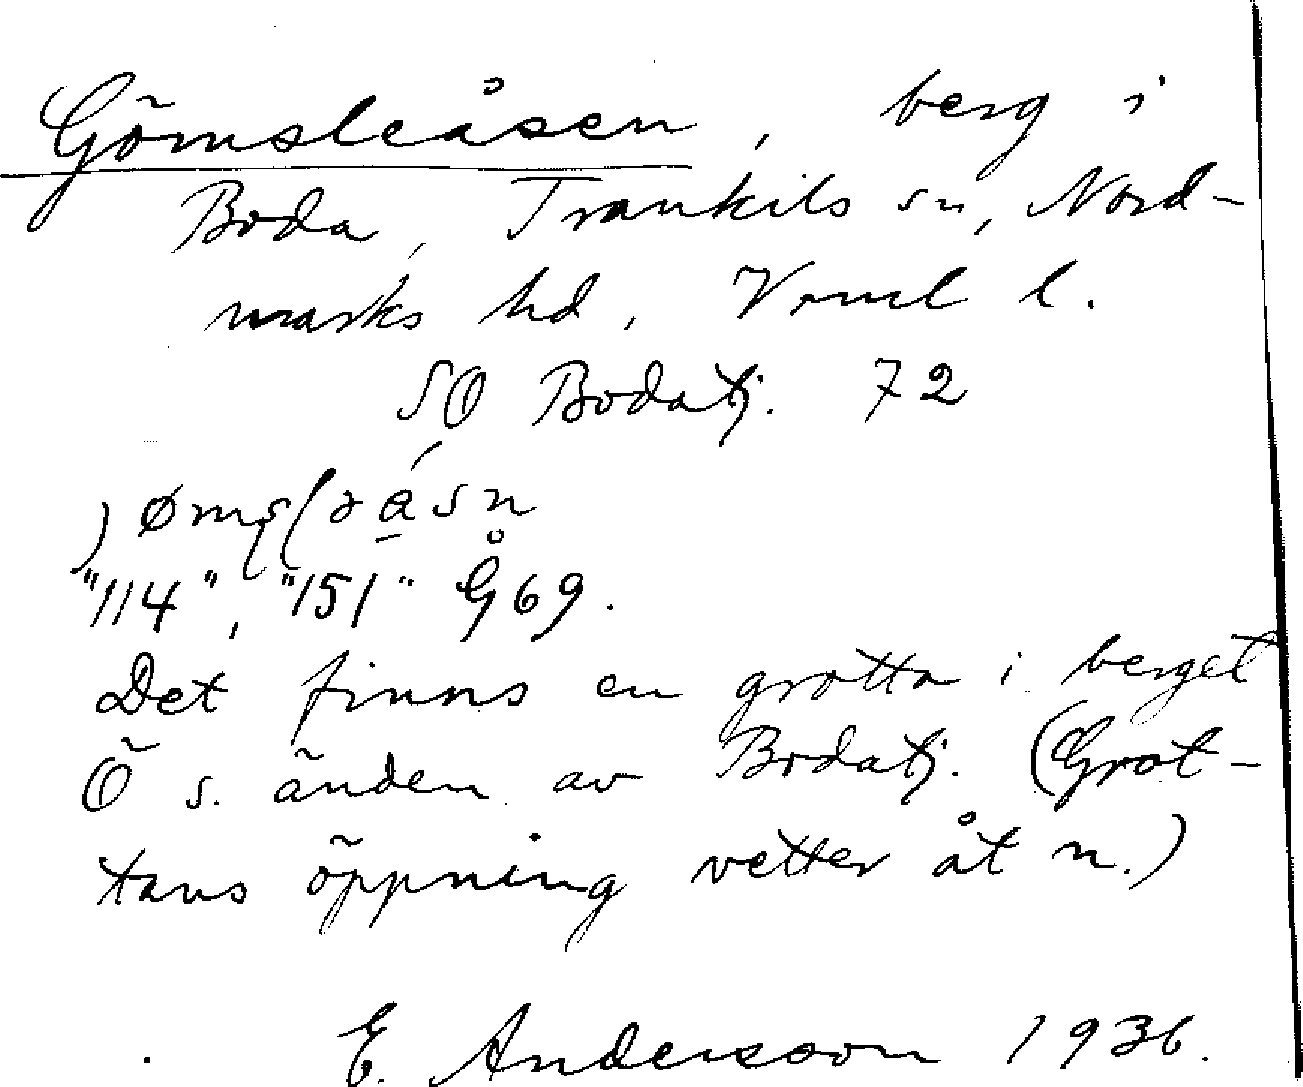 Gömsleåsen, berg i
Boda, Trankils sn, Nord-
marks hd, Vrml l.
SO Bodatj. 72
"114", "151" G̊69.
Det finns en grotta i berget
Ö s. änden av Bodatj. (Grot-
tans öppning vetter åt n.)
E. Andersson 1936.